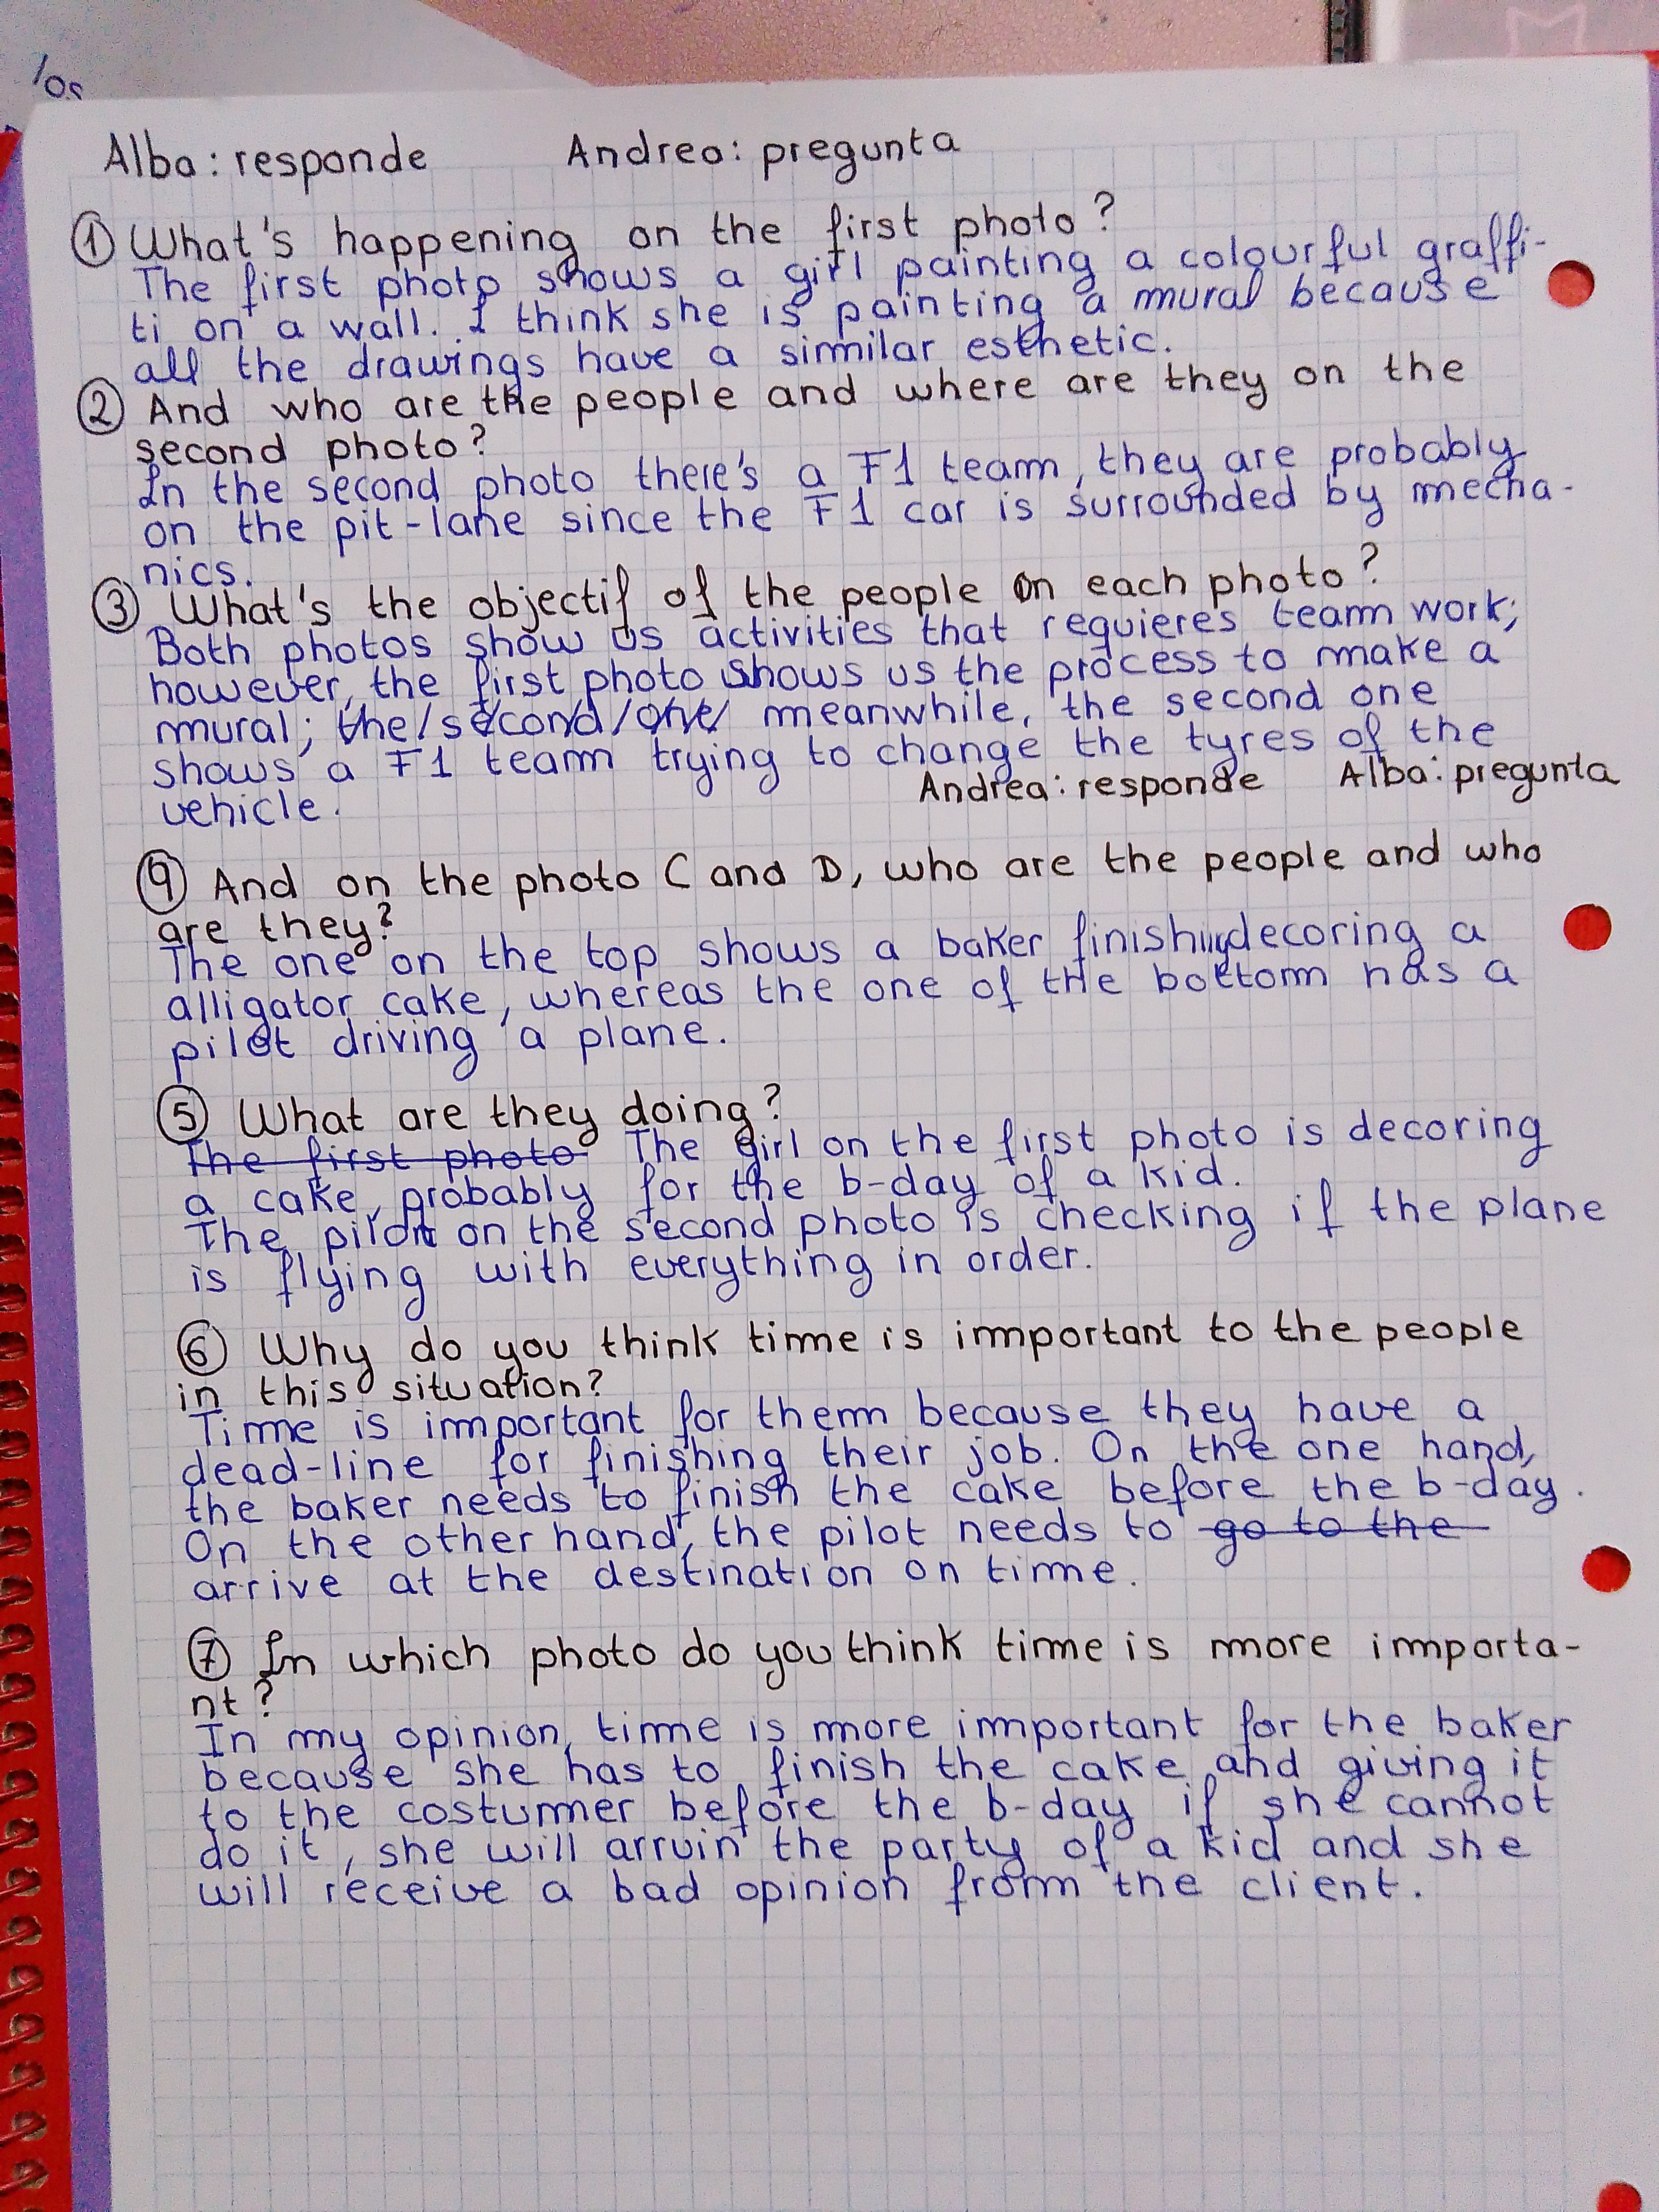 los
Alba: responde Andrea: pregunta
① What's happening on the first photo?
The first photo shows a girl painting a colourful graffi-
ti on a wall. I think she is painting a mural because
all the drawings have a similar esthetic.
② And who are the people and where are they on the
second photo?
In the second photo there's a F1 team, they are probably
on the pit-lane since the F1 car is surrounded by mecha-
nics.
③ What's the objectif of the people on each photo?
Both photos show us activities that requieres team work;
however, the first photo shows us the process to make a
mural; the second one meanwhile, the second one
shows a F1 team trying to change the tyres of the
vehicle.
Andrea: responde Alba: pregunta
④ And on the photo C and D, who are the people and who
are they?
The one on the top shows a baker finishing decoring a
alligator cake, whereas the one of the bottom has a
pilot driving a plane.
⑤ What are they doing?
The first photo The girl on the first photo is decoring
a cake, probably for the b-day of a kid.
The pilot on the second photo is checking if the plane
is flying with everything in order.
⑥ Why do you think time is important to the people
in this situation?
Time is important for them because they have a
dead-line for finishing their job. On the one hand,
the baker needs to finish the cake before the b-day.
On the other hand, the pilot needs to go to the
arrive at the destination on time.
⑦ In which photo do you think time is more importa-
nt?
In my opinion, time is more important for the baker
because she has to finish the cake and giving it
to the costumer before the b-day if she cannot
do it, she will arruin the party of a kid and she
will receive a bad opinion from the client.